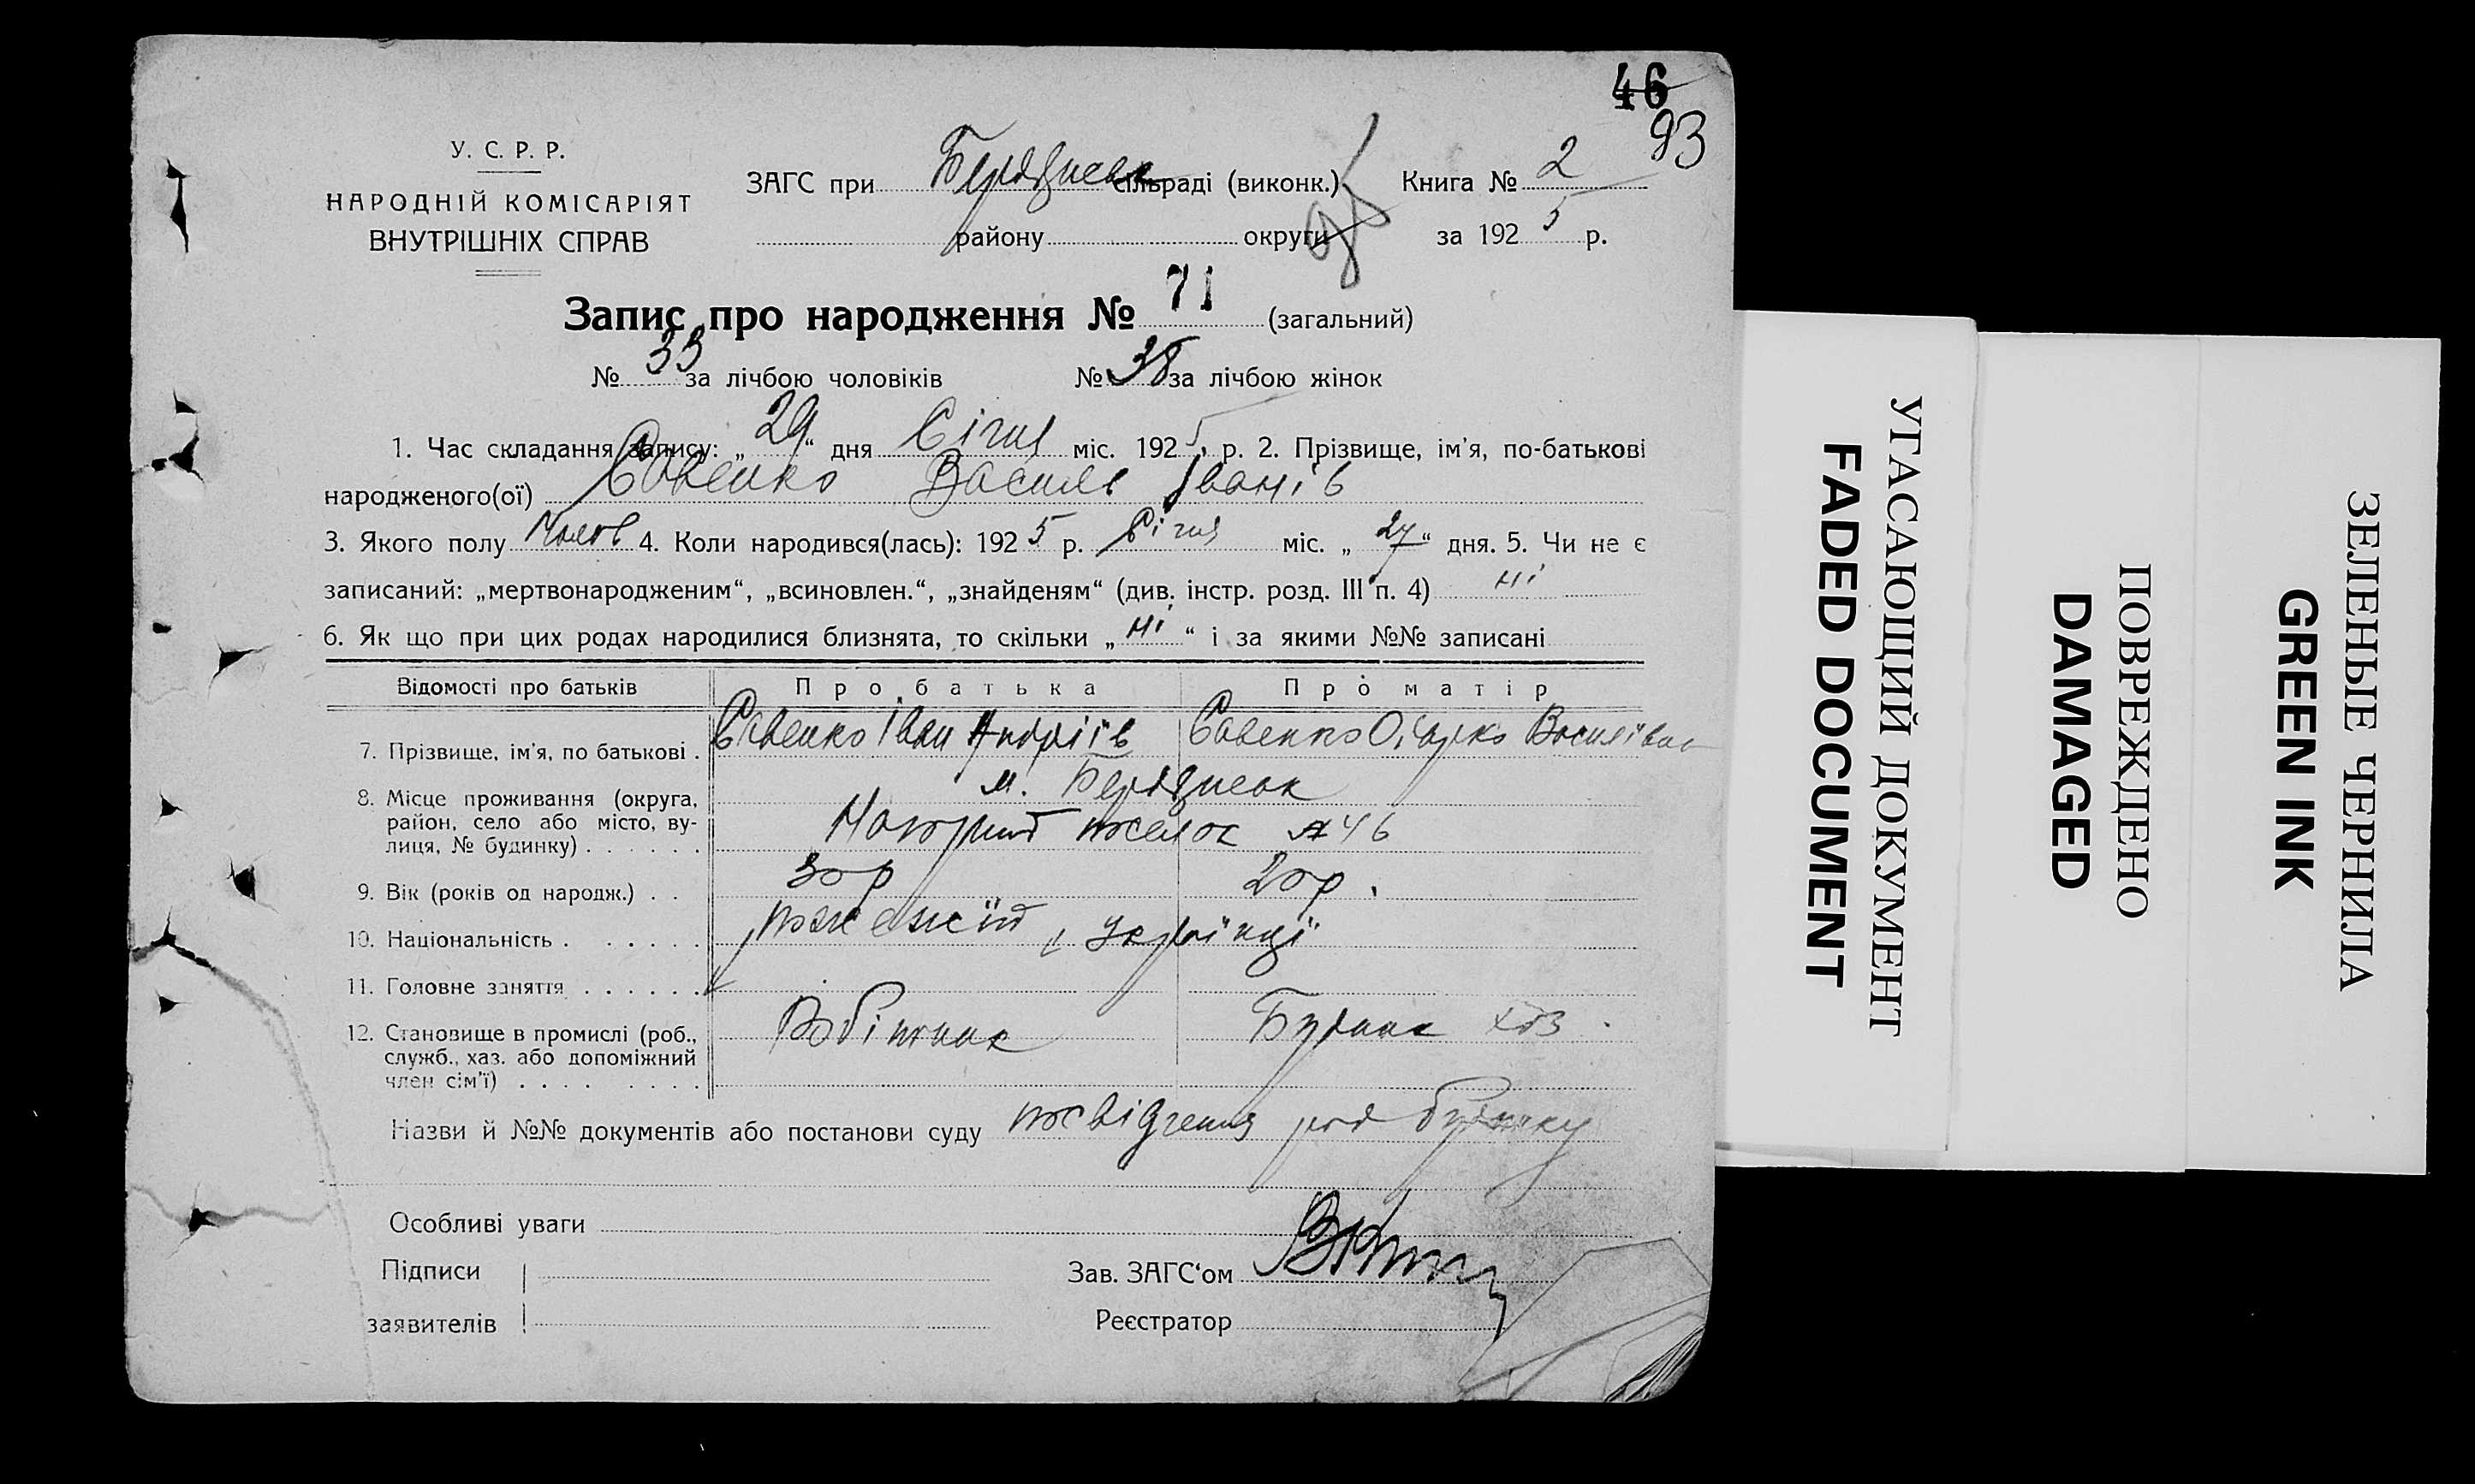 46
93
У. С. Р. Р.
НАРОДНІЙ КОМІСАРІЯТ
ВНУТРІШНІХ СПРАВ
ЗАГС при Бердянськ сільраді (виконк.) Книга № 2
району округи за 1925 р.
Запис про народження № 71 (загальний)
№ 33 за лічбою чоловіків № 38 за лічбою жінок
1. Час складання запису: „29“ дня Січня міс. 1925 р. 2. Прізвище, ім'я, по-батькові
народженого(ої) Савенко Василь Іванів
3. Якого полу Чолов 4. Коли народився(лась): 1925 р. Січня міс. „27“ дня. 5. Чи не є
записаний: „мертвонародженим“, „всиновлен.“, „знайденям“ (див. інстр. розд. III п. 4) ні
6. Як що при цих родах народилися близнята, то скільки „ні“ і за якими №№ записані
Відомості про батьків Про батька Про матір
7. Прізвище, ім'я, по батькові . Савенко Іван Андріїв Савенко Василівна
8. Місце проживання (округа,
район, село або місто, ву-
лиця, № будинку) . . . . . .
м. Бердянськ
Нагорний поселок № 46
9. Вік (років од народж.) . . 30 р 20 р.
10. Національність . . . . . . українці
11. Головне заняття . . . . . .
12. Становище в промислі (роб.,
служб., хаз. або допоміжний
член сім'ї) . . . . . . . .
Робітник Будинк хоз
Назви й №№ документів або постанови суду посвідчення род будинку
Особливі уваги
Підписи
заявителів
Зав. ЗАГС‘ом
Реєстратор
УГАСАЮЩИЙ ДОКУМЕНТ
FADED DOCUMENT
ПОВРЕЖДЕНО
DAMAGED
ЗЕЛЕНЫЕ ЧЕРНИЛА
GREEN INK